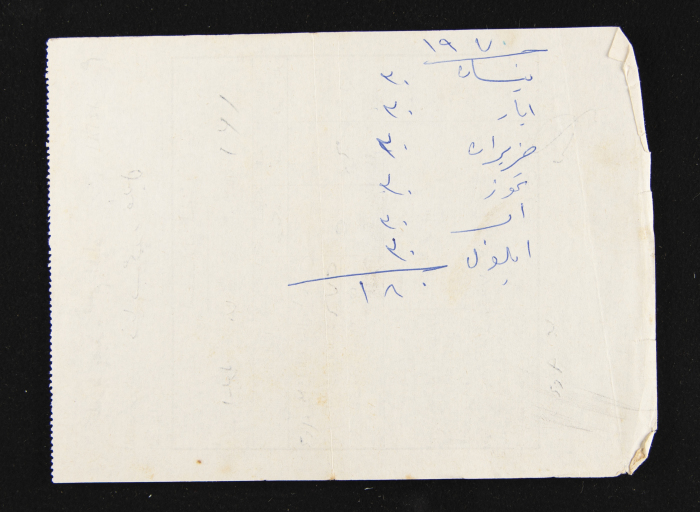 ١٩٧٠
نيسان ٣٠
ايار ٣٠
حزيران ٣٠
تموز ٣٠
اب ٣٠
ايلول ٣٠
١٨٠